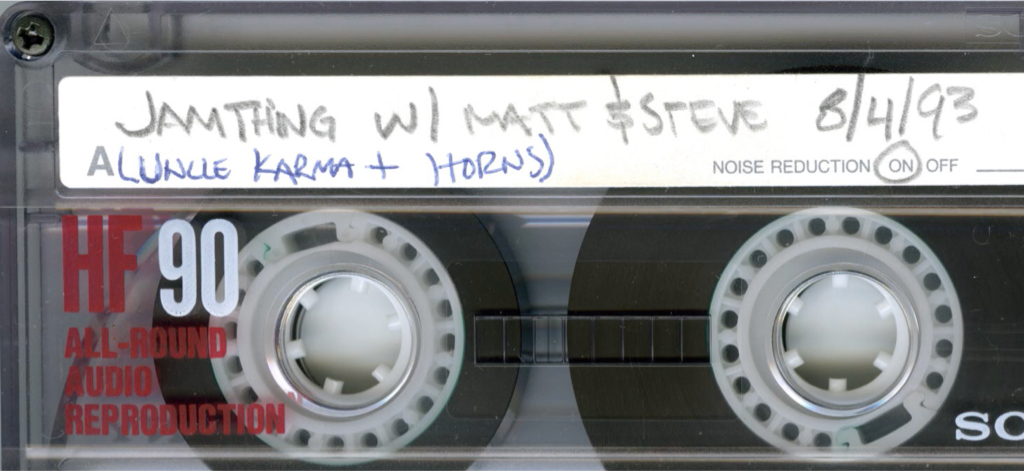 JAMTHING W/ MATT & STEVE 8/4/93
A (UNCLE KARMA + HORNS)
NOISE REDUCTION ON OFF
HF 90
ALL-ROUND
AUDIO
REPRODUCTION
SO